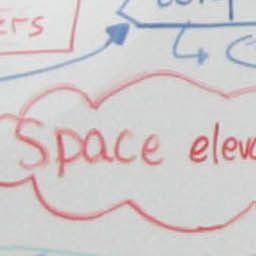 ers
Space eleva